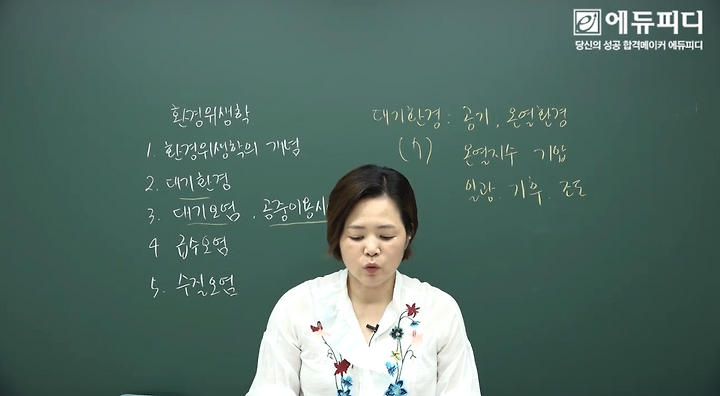 에듀피디
당신의 성공 합격메이커 에듀피디
환경위생학
1. 환경위생학의 개념
2. 대기환경
3. 대기오염, 공중이용시
4 급수오염
5. 수질오염
대기환경: 공기, 온열환경
온열지수 기압
일광. 기후. 조도